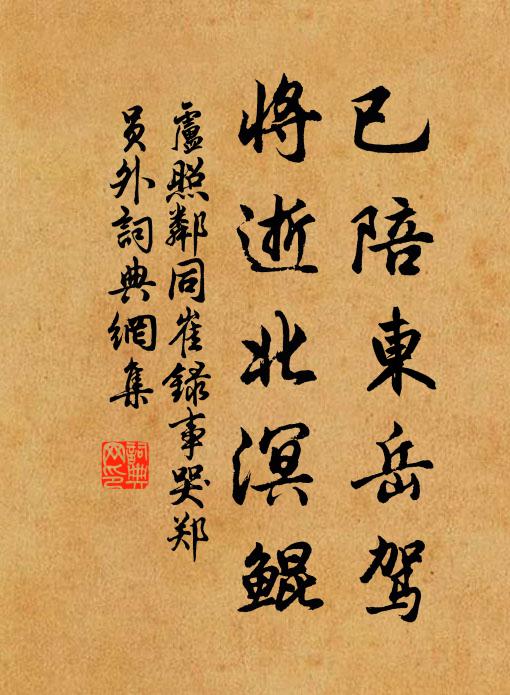 已陪東岳駕
將逝北溟鯤
盧照鄰同崔錄事哭郑
員外詞典網集
詞典
网印